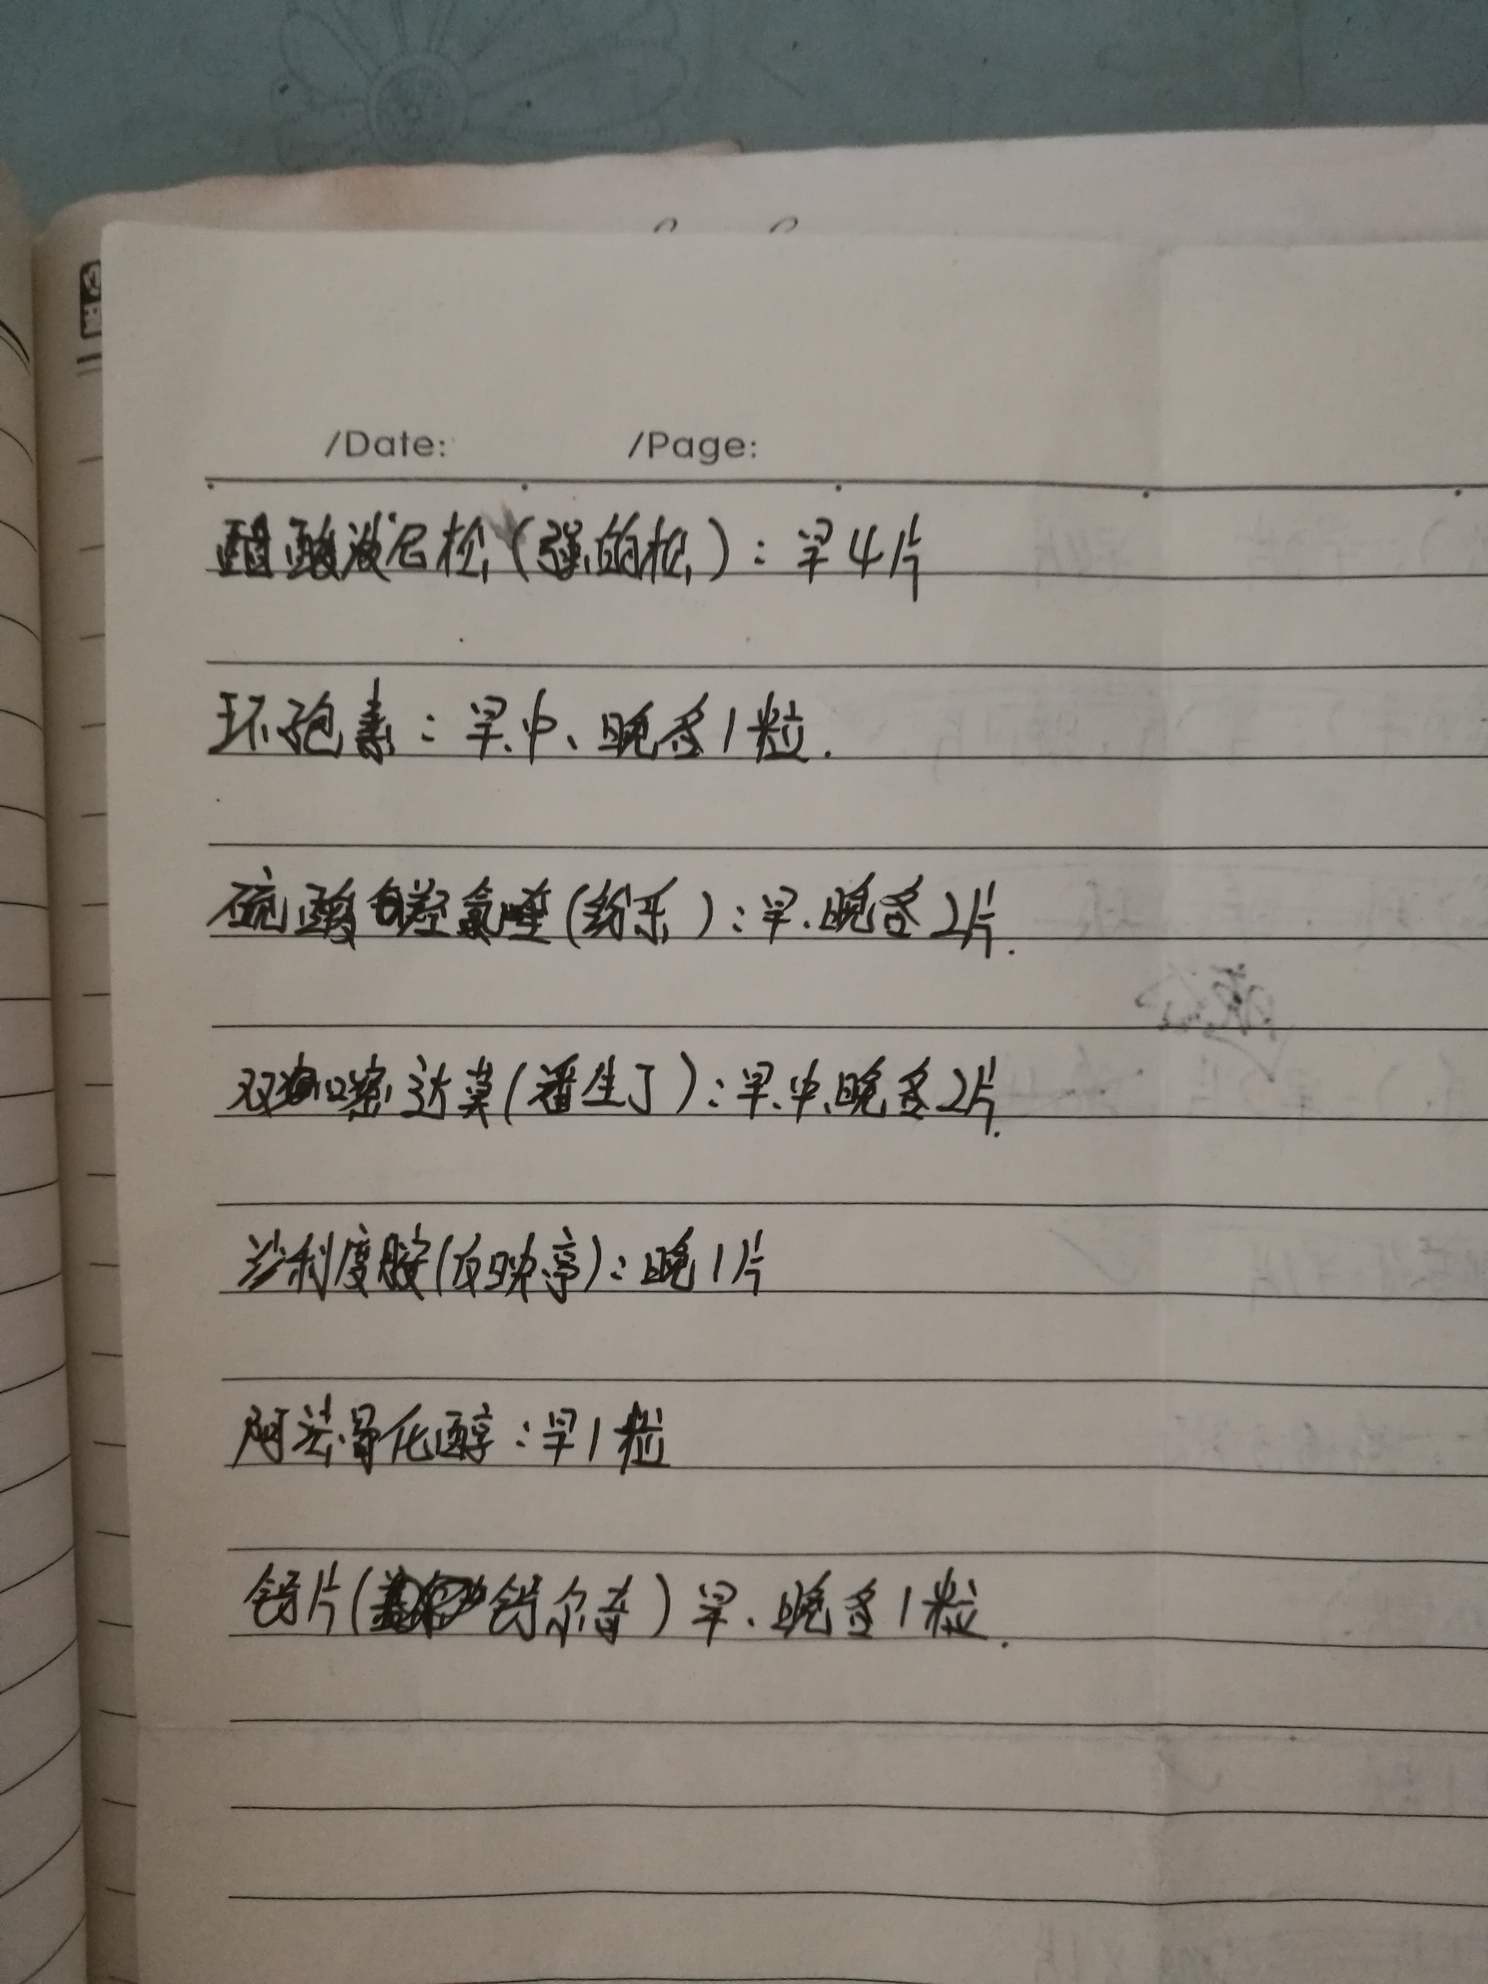 /Date: /Page:
醋酸泼尼松(强的松):早4片
环孢素:早、中、晚各1粒.
硫酸羟氯喹(纷乐):早、晚各2片.
双嘧达莫(潘生丁):早、中、晚各2片.
沙利度胺(反映停):晚1片
阿法骨化醇:早1粒
钙片(钙尔奇)早、晚各1粒.